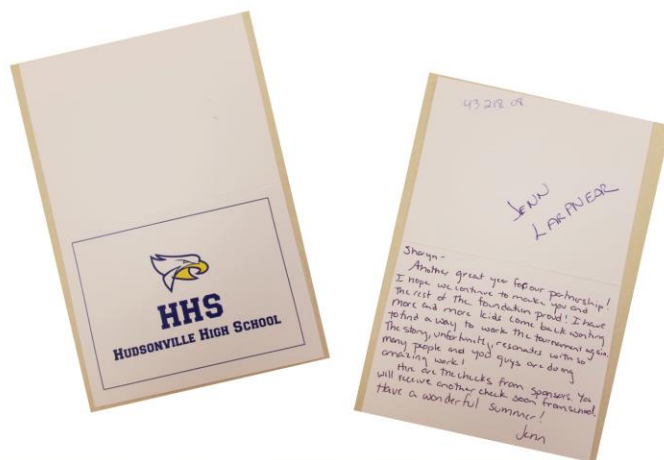 HHS
HUDSONVILLE HIGH SCHOOL
JENN
LARANEOR
Sharyn -
Another great year for our partnership!
I hope we continue to make you and
the rest of the foundation proud! I have
more and more kids come back wanting
to find a way to work the tournament again.
The story, unfortunitly, resonates with so
many people and you guys are doing
amazing work!
Here are the checks from sponsors. You
will receive another check soon from school.
Have a wonderful summer!
Jenn